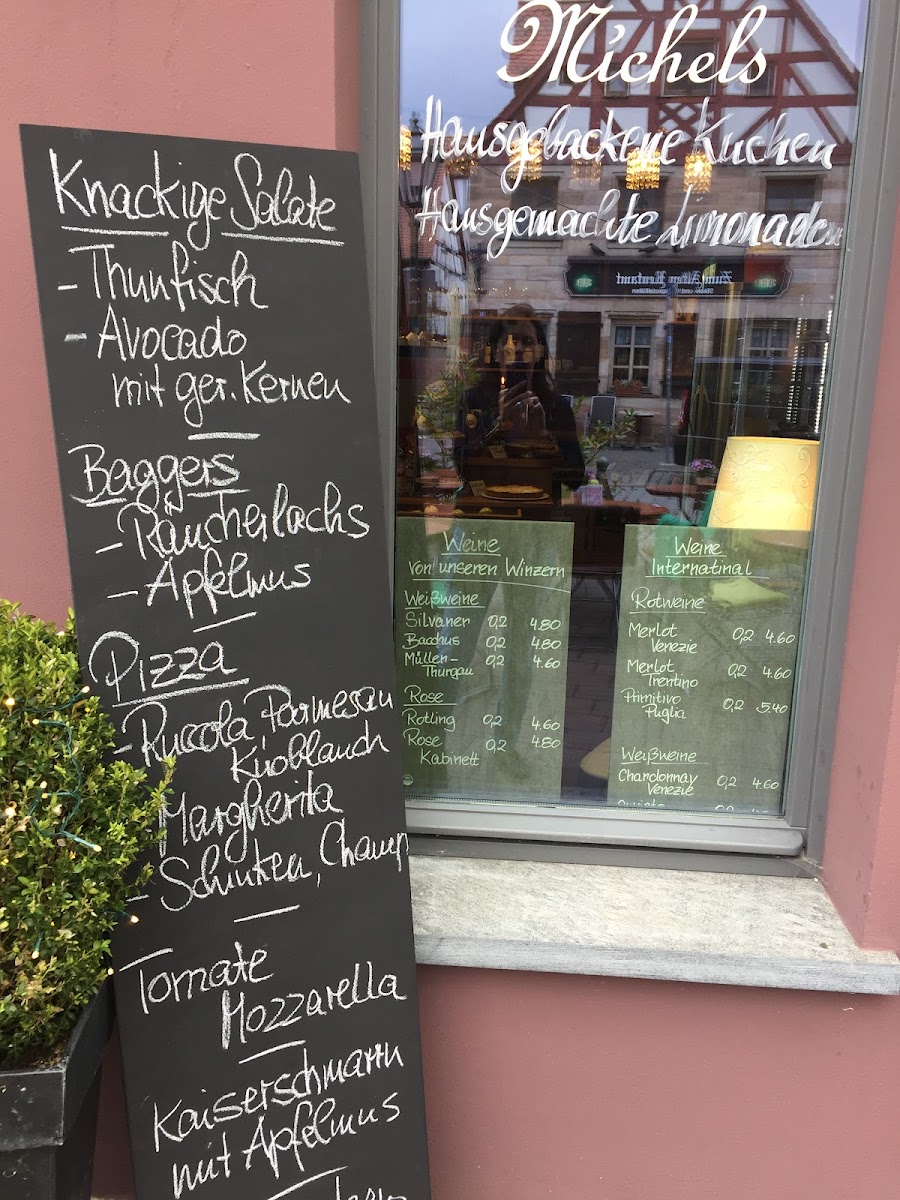 Knackige Salate
- Thunfisch
- Avocado
mit ger. Kernen
Baggers
- Räucherlachs
- Apfelmus
Pizza
- Ruccola, Parmesan
Knoblauch
- Margherita
- Schinken, Champ
Tomate
Mozzarella
Kaiserschmarrn
mit Apfelmus
Michels
Hausgebackene Kuchen
Hausgemachte Limonaden
Zum Alten Rentamt
Weine
von unseren Winzern
Weißweine
Silvaner 0,2 4.80
Bacchus 0,2 4.80
Müller-
Thurgau 0,2 4.60
Rose
Rotling 0,2 4.60
Rose
Kabinett 0,2 4.80
Weine
Internatinal
Rotweine
Merlot
Venezie 0,2 4.60
Merlot
Trentino 0,2 4.60
Primitivo
Puglia 0,2 5.40
Weißweine
Chardonnay
Venezie 0,2 4.60